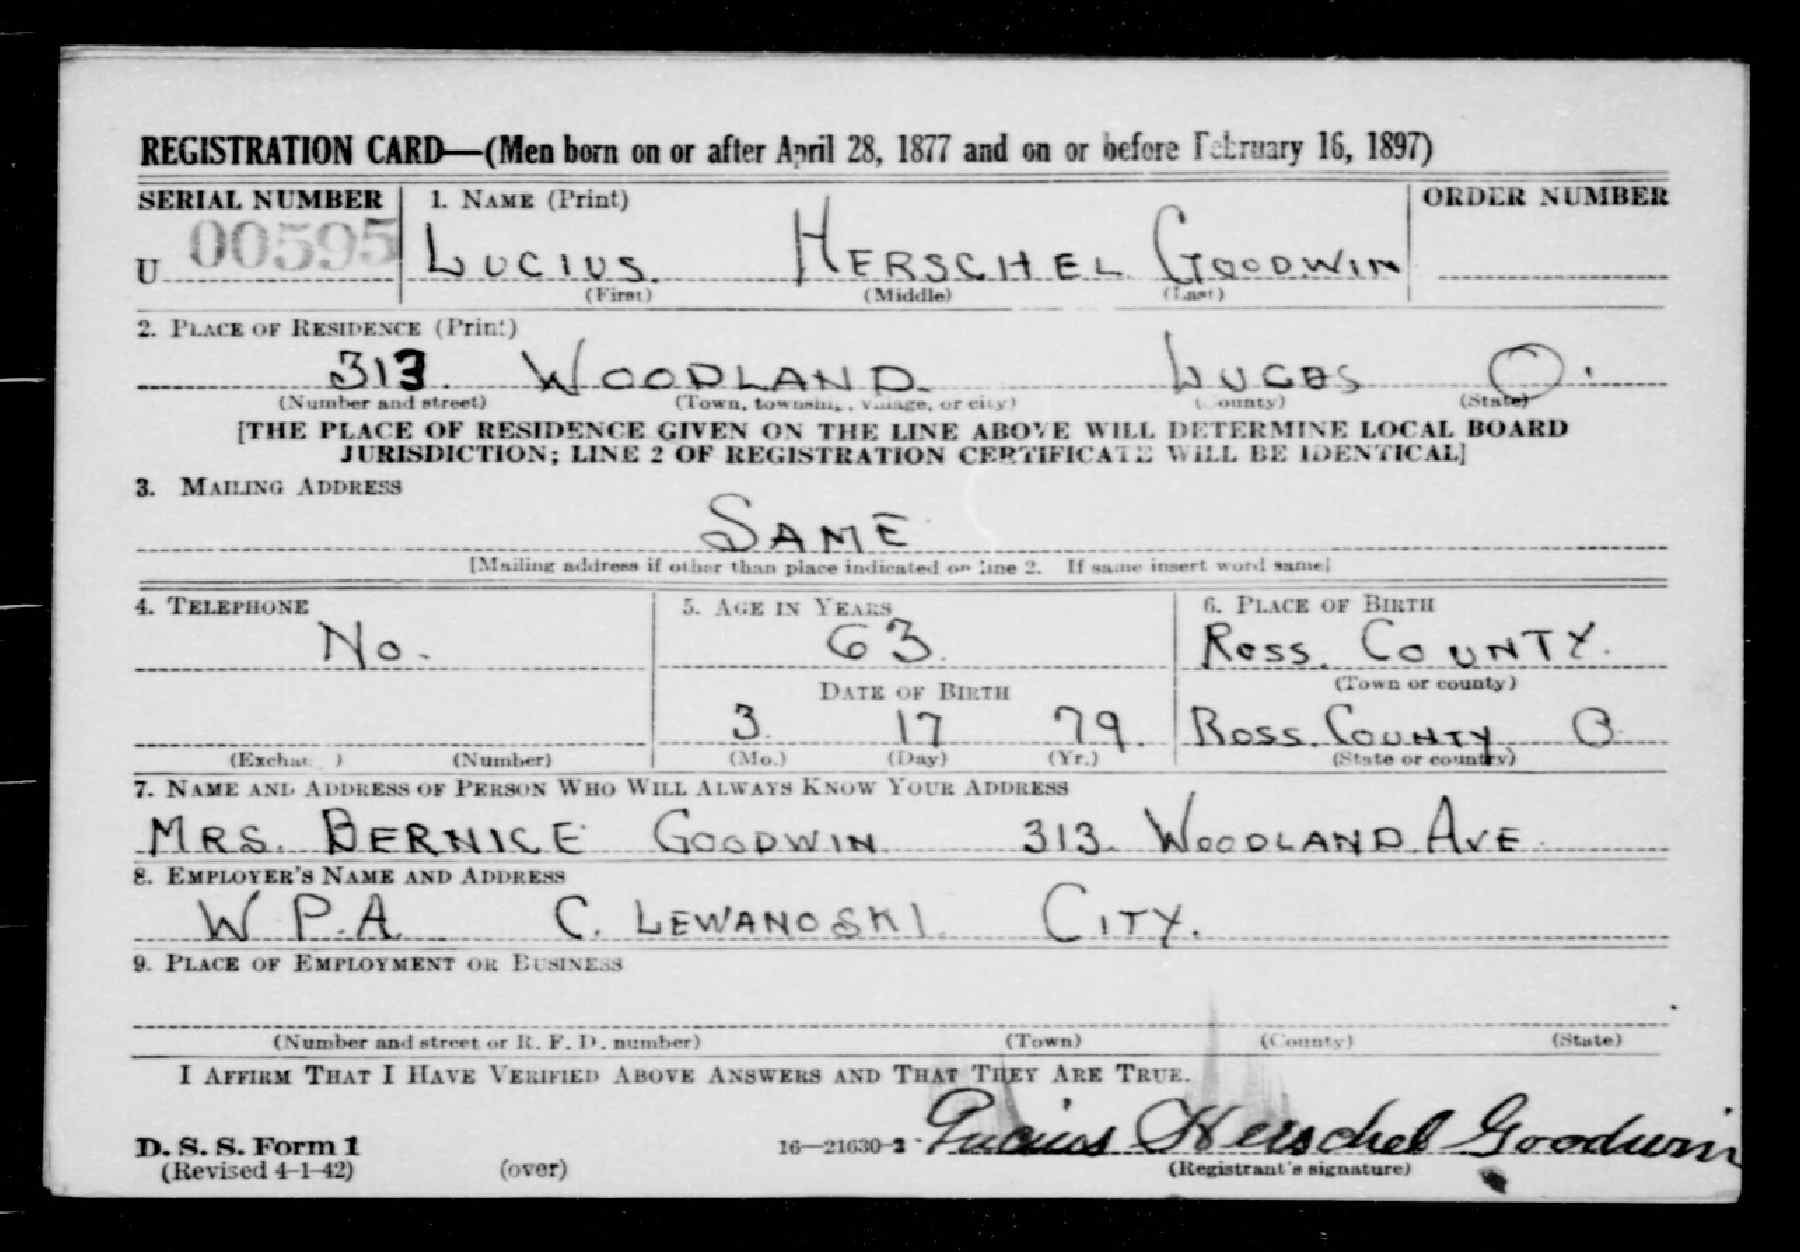 REGISTRATION CARD—(Men born on or after April 28, 1877 and on or before February 16, 1897)
SERIAL NUMBER 1. NAME (Print) ORDER NUMBER
U 00595 LUCIUS. HERSCHEL GOODWIN
(First) (Middle) (Last)
2. PLACE OF RESIDENCE (Print)
313. WOODLAND LUCAS O.
(Number and street) (Town, township, village, or city) (County) (State)
[THE PLACE OF RESIDENCE GIVEN ON THE LINE ABOVE WILL DETERMINE LOCAL BOARD
JURISDICTION; LINE 2 OF REGISTRATION CERTIFICATE WILL BE IDENTICAL]
3. MAILING ADDRESS
SAME
[Mailing address if other than place indicated on line 2. If same insert word same]
4. TELEPHONE 5. AGE IN YEARS 6. PLACE OF BIRTH
No. 63. ROSS. COUNTY.
(Town or county)
DATE OF BIRTH
3. 17 79. ROSS. COUNTY, O
(Exchange) (Number) (Mo.) (Day) (Yr.) (State or country)
7. NAME AND ADDRESS OF PERSON WHO WILL ALWAYS KNOW YOUR ADDRESS
MRS. BERNICE GOODWIN 313. WOODLAND. AVE
8. EMPLOYER'S NAME AND ADDRESS
W P.A. C. LEWANOSKI. CITY.
9. PLACE OF EMPLOYMENT OR BUSINESS
(Number and street or R. F. D. number) (Town) (County) (State)
I AFFIRM THAT I HAVE VERIFIED ABOVE ANSWERS AND THAT THEY ARE TRUE.
D. S. S. Form 1 16—21630-2 Lucius Herschel Goodwin
(Revised 4-1-42) (over) (Registrant's signature)